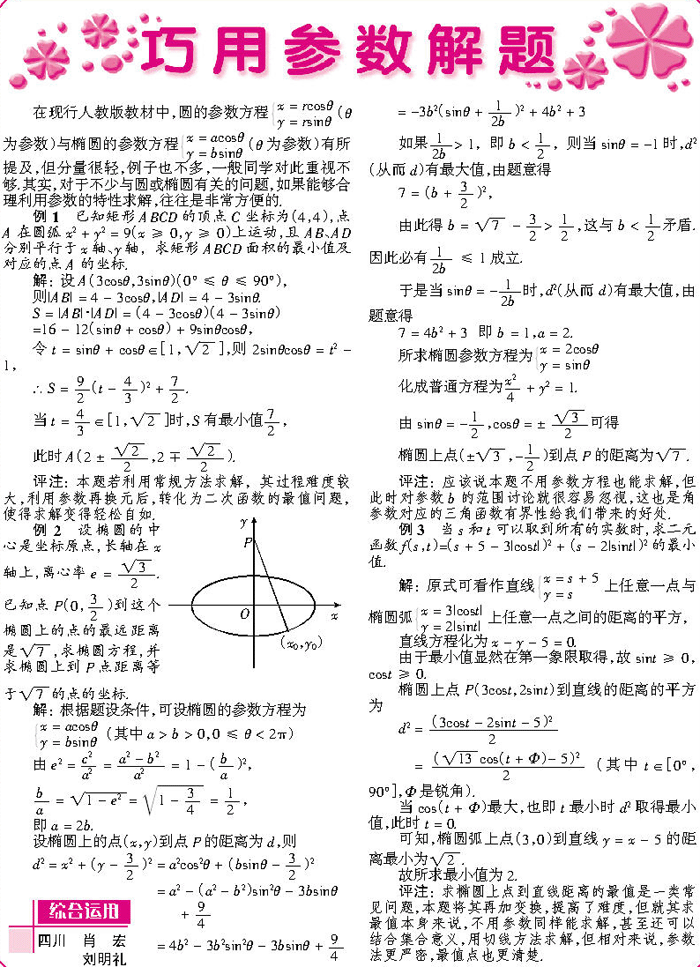 巧用参数解题
在现行人教版教材中,圆的参数方程{x = rcosθ y = rsinθ (θ
为参数)与椭圆的参数方程{x = acosθ y = bsinθ (θ为参数)有所
提及,但分量很轻,例子也不多,一般同学对此重视不
够.其实,对于不少与圆或椭圆有关的问题,如果能够合
理利用参数的特性求解,往往是非常方便的.
例1 已知矩形ABCD的顶点C坐标为(4,4),点
A在圆弧x² + y² = 9(x ≥ 0,y ≥ 0)上运动,且AB、AD
分别平行于x轴、y轴, 求矩形ABCD面积的最小值及
对应的点A的坐标.
解: 设A(3cosθ,3sinθ)(0° ≤ θ ≤ 90°),
则|AB| = 4 - 3cosθ,|AD| = 4 - 3sinθ.
S = |AB|·|AD| = (4 - 3cosθ)(4 - 3sinθ)
=16 - 12(sinθ + cosθ) + 9sinθcosθ,
令t = sinθ + cosθ∈[1,√2],则2sinθcosθ = t² -
1,
∴ S = 9/2(t - 4/3)² + 7/2.
当t = 4/3∈[1,√2]时,S有最小值7/2,
此时A(2 ± √2/2,2 ∓ √2/2).
评注: 本题若利用常规方法求解, 其过程难度较
大,利用参数再换元后,转化为二次函数的最值问题,
使得求解变得轻松自如.
例2 设椭圆的中
心是坐标原点,长轴在x
轴上,离心率e = √3/2.
已知点P(0,3/2)到这个
椭圆上的点的最远距离
是√7,求椭圆方程,并
求椭圆上到P点距离等
于√7的点的坐标.
y
P
O
x
(x₀,y₀)
解: 根据题设条件,可设椭圆的参数方程为
{x = acosθ y = bsinθ (其中a > b > 0,0 ≤ θ < 2π)
由e² = c²/a² = (a² - b²)/a² = 1 - (b/a)²,
b/a = √(1 - e²) = √(1 - 3/4) = 1/2,
即a = 2b.
设椭圆上的点(x,y)到点P的距离为d,则
d² = x² + (y - 3/2)² = a²cos²θ + (bsinθ - 3/2)²
= a² - (a² - b²)sin²θ - 3bsinθ
+ 9/4
= 4b² - 3b²sin²θ - 3bsinθ + 9/4
综合运用
四川 肖 宏
刘明礼
= -3b²(sinθ + 1/2b)² + 4b² + 3
如果1/2b > 1, 即b < 1/2, 则当sinθ = -1时,d²
(从而d)有最大值,由题意得
7 = (b + 3/2)²,
由此得b = √7 - 3/2 > 1/2,这与b < 1/2矛盾.
因此必有1/2b ≤ 1成立.
于是当sinθ = -1/2b时,d²(从而d)有最大值,由
题意得
7 = 4b² + 3 即b = 1,a = 2.
所求椭圆参数方程为{x = 2cosθ y = sinθ
化成普通方程为x²/4 + y² = 1.
由sinθ = -1/2,cosθ = ± √3/2可得
椭圆上点(±√3,-1/2)到点P的距离为√7.
评注: 应该说本题不用参数方程也能求解,但
此时对参数b的范围讨论就很容易忽视,这也是角
参数对应的三角函数有界性给我们带来的好处.
例3 当s和t可以取到所有的实数时,求二元
函数f(s,t)=(s + 5 - 3|cost|)² + (s - 2|sint|)²的最小
值.
解: 原式可看作直线{x = s + 5 y = s 上任意一点与
椭圆弧{x = 3|cost| y = 2|sint| 上任意一点之间的距离的平方,
直线方程化为x - y - 5 = 0.
由于最小值显然在第一象限取得,故sint ≥ 0,
cost ≥ 0.
椭圆上点P(3cost,2sint)到直线的距离的平方
为
d² = (3cost - 2sint - 5)²/2
= (√13 cos(t + Φ) - 5)²/2 (其中t∈[0°,
90°],Φ是锐角).
当cos(t + Φ)最大,也即t最小时d²取得最小
值,此时t = 0.
可知,椭圆弧上点(3,0)到直线y = x - 5的距
离最小为√2.
故所求最小值为2.
评注: 求椭圆上点到直线距离的最值是一类常
见问题,本题将其再加变换,提高了难度,但就其求
最值本身来说,不用参数同样能求解,甚至还可以
结合集合意义,用切线方法求解,但相对来说,参数
法更严密,最值点也更清楚.